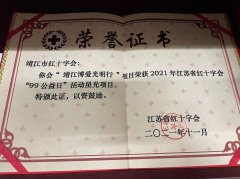 荣誉证书
靖江市红十字会:
你会“靖江博爱光明行”项目荣获2021年江苏省红十字会
“99公益日”活动星光项目。
特颁此证,以资鼓励。
江苏省红十字会
二〇二一年十一月